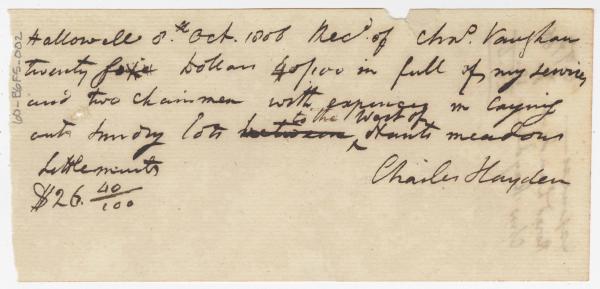 Hallowell 8th Oct. 1806 Recd. of Chas. Vaughan
twenty Dollars 40/100 in full of my services
and two chainmen with expences in laying
out sundry lots between to the West of meadows
Settlements
$26. 40/100
Charles Hayden
60-B6F5-002